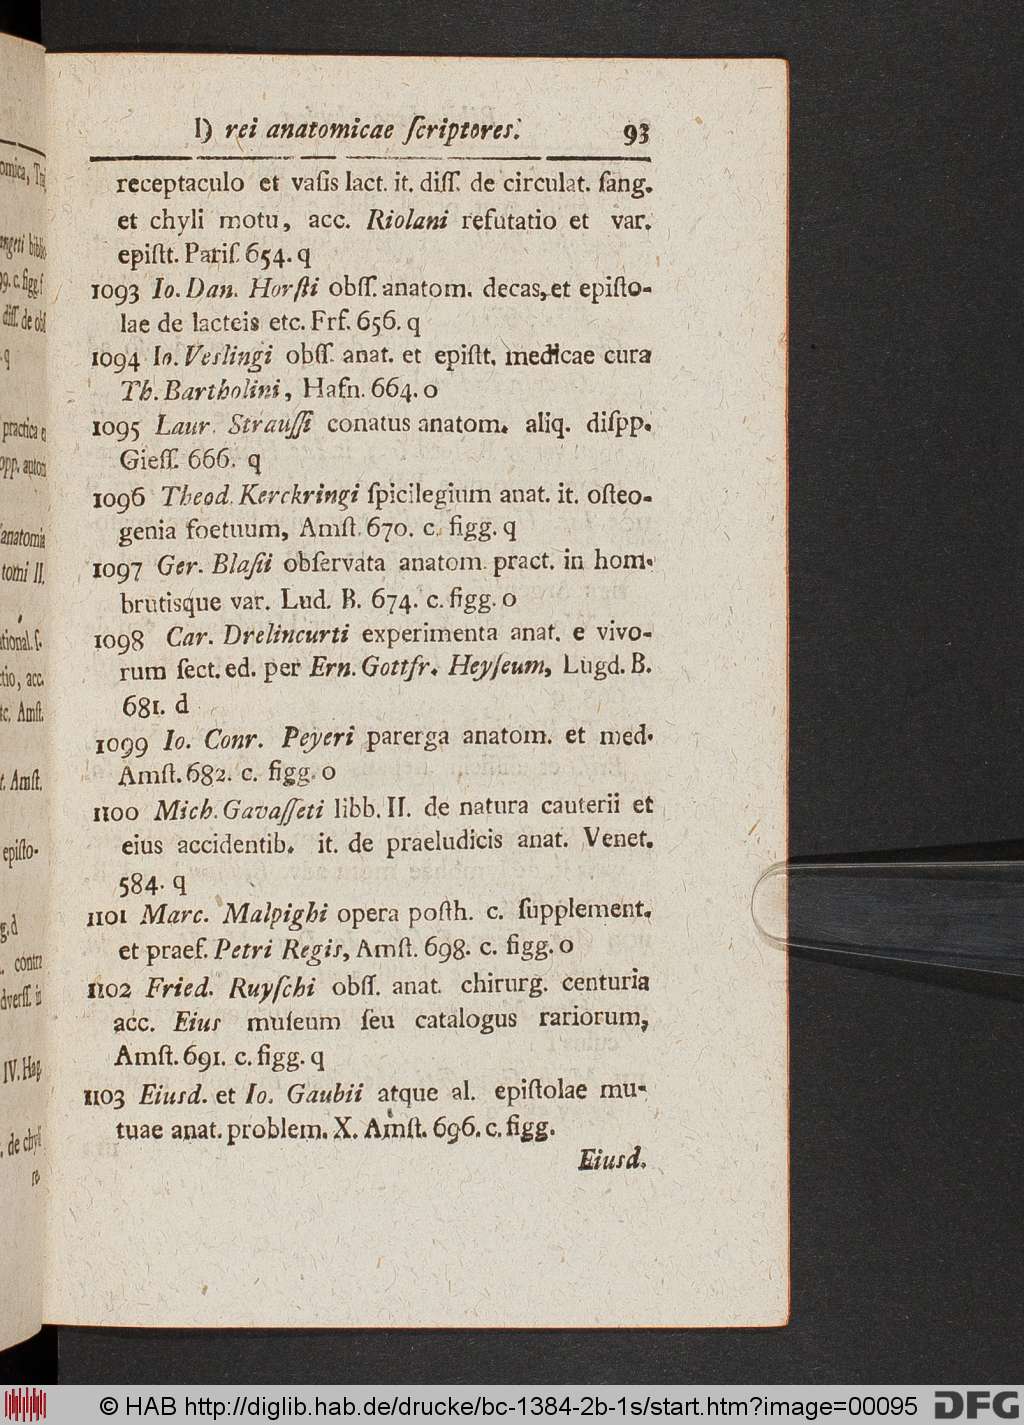 I) rei anatomicae ſcriptores. 93
receptaculo et vaſis lact. it. diſſ. de circulat. ſang.
et chyli motu, acc. Riolani refutatio et var.
epiſtt. Pariſ. 654. q
1093 Io. Dan. Horſti obſſ. anatom. decas, et epiſto-
lae de lacteis etc. Frf. 656. q
1094 Io. Veslingi obſſ. anat. et epiſtt. medicae cura
Th. Bartholini, Hafn. 664. o
1095 Laur. Strauſſi conatus anatom. aliq. diſpp.
Gieſſ. 666. q
1096 Theod. Kerckringi ſpicilegium anat. it. oſteo-
genia foetuum, Amſt. 670. c. figg. q
1097 Ger. Blaſii obſervata anatom. pract. in hom.
brutisque var. Lud. B. 674. c. figg. o
1098 Car. Drelincurti experimenta anat. e vivo-
rum ſect. ed. per Ern. Gottfr. Heyſeum, Lugd. B.
681. d
1099 Io. Conr. Peyeri parerga anatom. et med.
Amſt. 682. c. figg. o
1100 Mich. Gavaſſeti libb. II. de natura cauterii et
eius accidentib. it. de praeludicis anat. Venet.
584. q
1101 Marc. Malpighi opera poſth. c. ſupplement.
et praef. Petri Regis, Amſt. 698. c. figg. o
1102 Fried. Ruyſchi obſſ. anat. chirurg. centuria
acc. Eius muſeum ſeu catalogus rariorum,
Amſt. 691. c. figg. q
1103 Eiusd. et Io. Gaubii atque al. epiſtolae mu-
tuae anat. problem. X. Amſt. 696. c. figg.
Eiusd.
© HAB http://diglib.hab.de/drucke/bc-1384-2b-1s/start.htm?image=00095 DFG